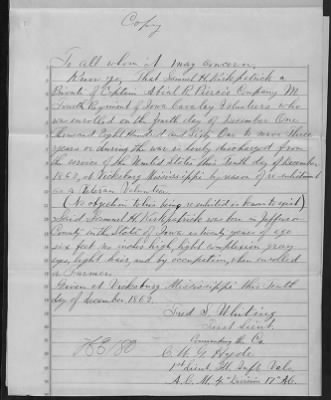 Copy
To all whom it may concern,
Know ye, That Samuel H. Kirkpatrick a
Private of Captain Abial R. Pierce's Company M
Fourth Regiment of Iowa Cavalry Volunteers who
was enrolled on the fourth day of December One
thousand Eight Hundred and Sixty One to serve three
years or during the war is hereby discharged from
the service of the United States this Tenth day of December
1863, at Vicksburg Mississippi by reason of re-enlistment
as a Veteran Volunteer
(No objection to his being re-enlisted is known to exist)
Said Samuel H. Kirkpatrick was born in Jefferson
County in the State of Iowa is twenty years of age
is 6 feet no inches high, light complexion, gray
eyes, light hair, and by occupation, when enrolled
a Farmer.
Given at Vicksburg Mississippi this tenth
day of December 1863.
Fred S. Whiting
First Lieut.
Commanding the Co.
C. W. G. Hyde
1st Lieut Ill. Infy Vols
A.C.M. 4" Division 17" A.C.